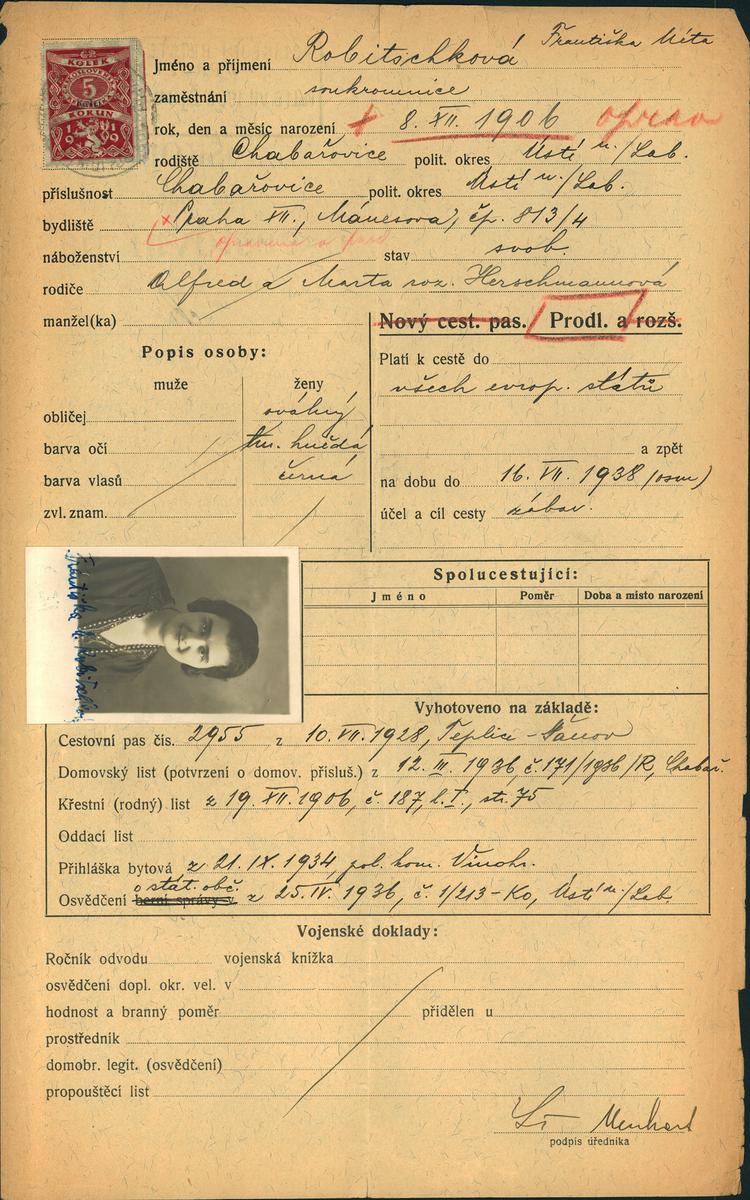 KOLEK
5
KORUN
1919
Jméno a příjmení Robitschková Františka Méta
zaměstnání soukromnice
rok, den a měsíc narození + 8. XII. 1906 oprav
rodiště Chabařovice polit. okres Ústí n./Lab.
příslušnost Chabařovice polit. okres Ústí n./Lab.
bydliště Praha XII., Mánesova, čp. 813/4
náboženství stav svob.
rodiče Alfred a Marta roz. Herschmannová
manžel(ka)
Nový cest. pas. Prodl. a rozš.
Popis osoby:
muže ženy
obličej oválný
barva očí tm. hnědá
barva vlasů černá
zvl. znam.
Platí k cestě do
všech evrop. států
a zpět
na dobu do 16. VII. 1938 (osm)
účel a cíl cesty zábav.
Spolucestující:
Jméno Poměr Doba a místo narození
Vyhotoveno na základě:
Cestovní pas čís. 2955 z 10. VII. 1928, Teplice-Šanov
Domovský list (potvrzení o domov. přísluš.) z 12. III. 1936 č. 171/1936/R, Chabař.
Křestní (rodný) list z 19. XII. 1906, č. 187, l. I., str. 75
Oddací list
Přihláška bytová z 21. IX. 1934, pol. kom. Vinohr.
o stát. obč.
Osvědčení berní správy v z 25. IV. 1936, č. 1/213-Ko, Ústí n./Lab.
Vojenské doklady:
Ročník odvodu vojenská knížka
osvědčení dopl. okr. vel. v
hodnost a branný poměr přidělen u
prostředník
domobr. legit. (osvědčení)
propouštěcí list
Menhart
podpis úředníka